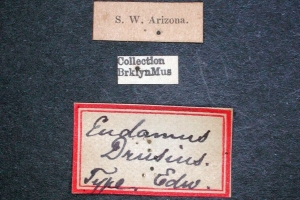 S. W. Arizona.
Collection
BrklynMus
Eudamus
Drusius.
Type, Edw.